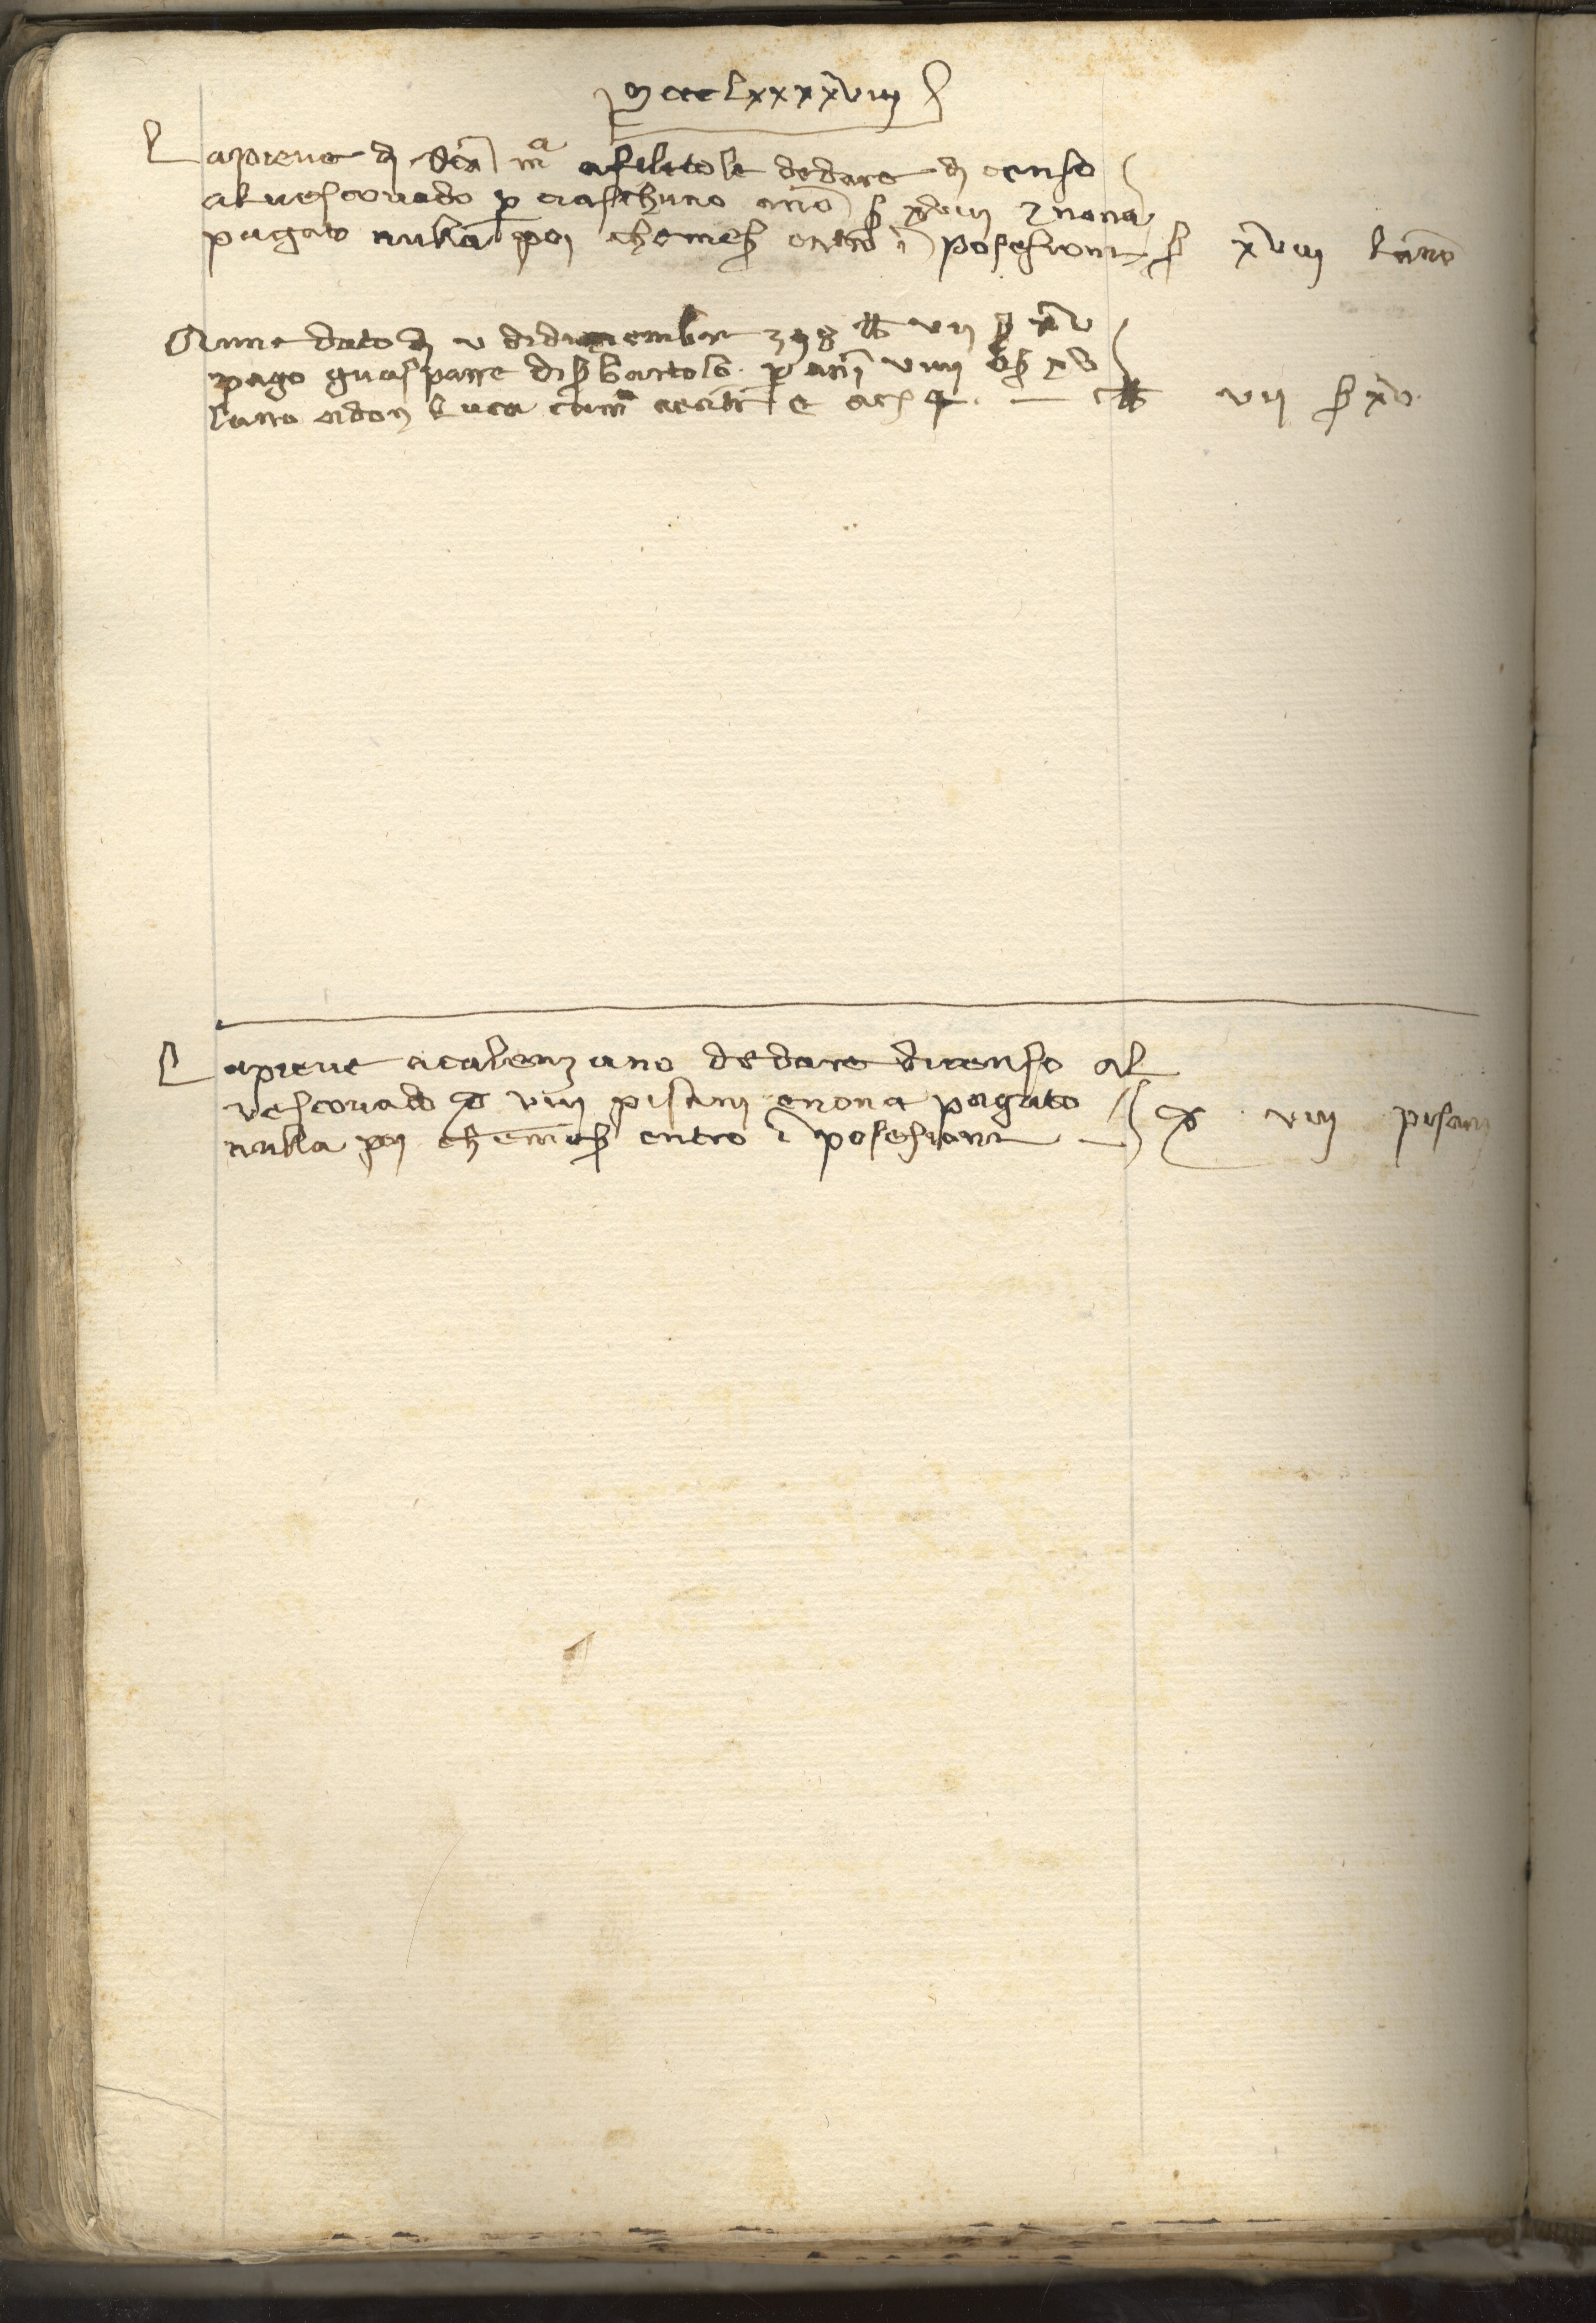 Mccclxxxxviiij
Lapieve di sca ma a filetole dedare di censo
al vescovado p ciaschuno anno s xviiij enona
pagato nulla poi chemes entro i posesione s xviij lanno
Anne dato di v di diciembre 398 lb vij s xv
pago guasparre di s bartolo p anni viiij s xv
lanno
lb vij s xv
Lapieve acalenzano dedare dicenso al
vescovado d viiij pisani enona pagato
nulla poi chemes entro i posesione d viiij pisani